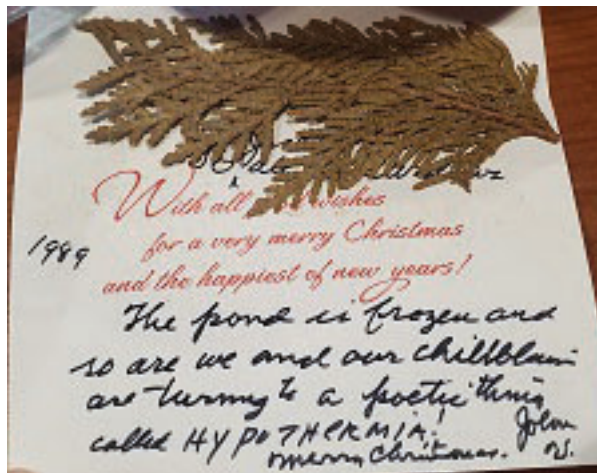 With all wishes
for a very merry Christmas
1989
and the happiest of new years!
The pond is frozen and
so are we and our chillblain
are turning to a poetic thing
called HYPOTHERMIA!
Merry Christmas.
John